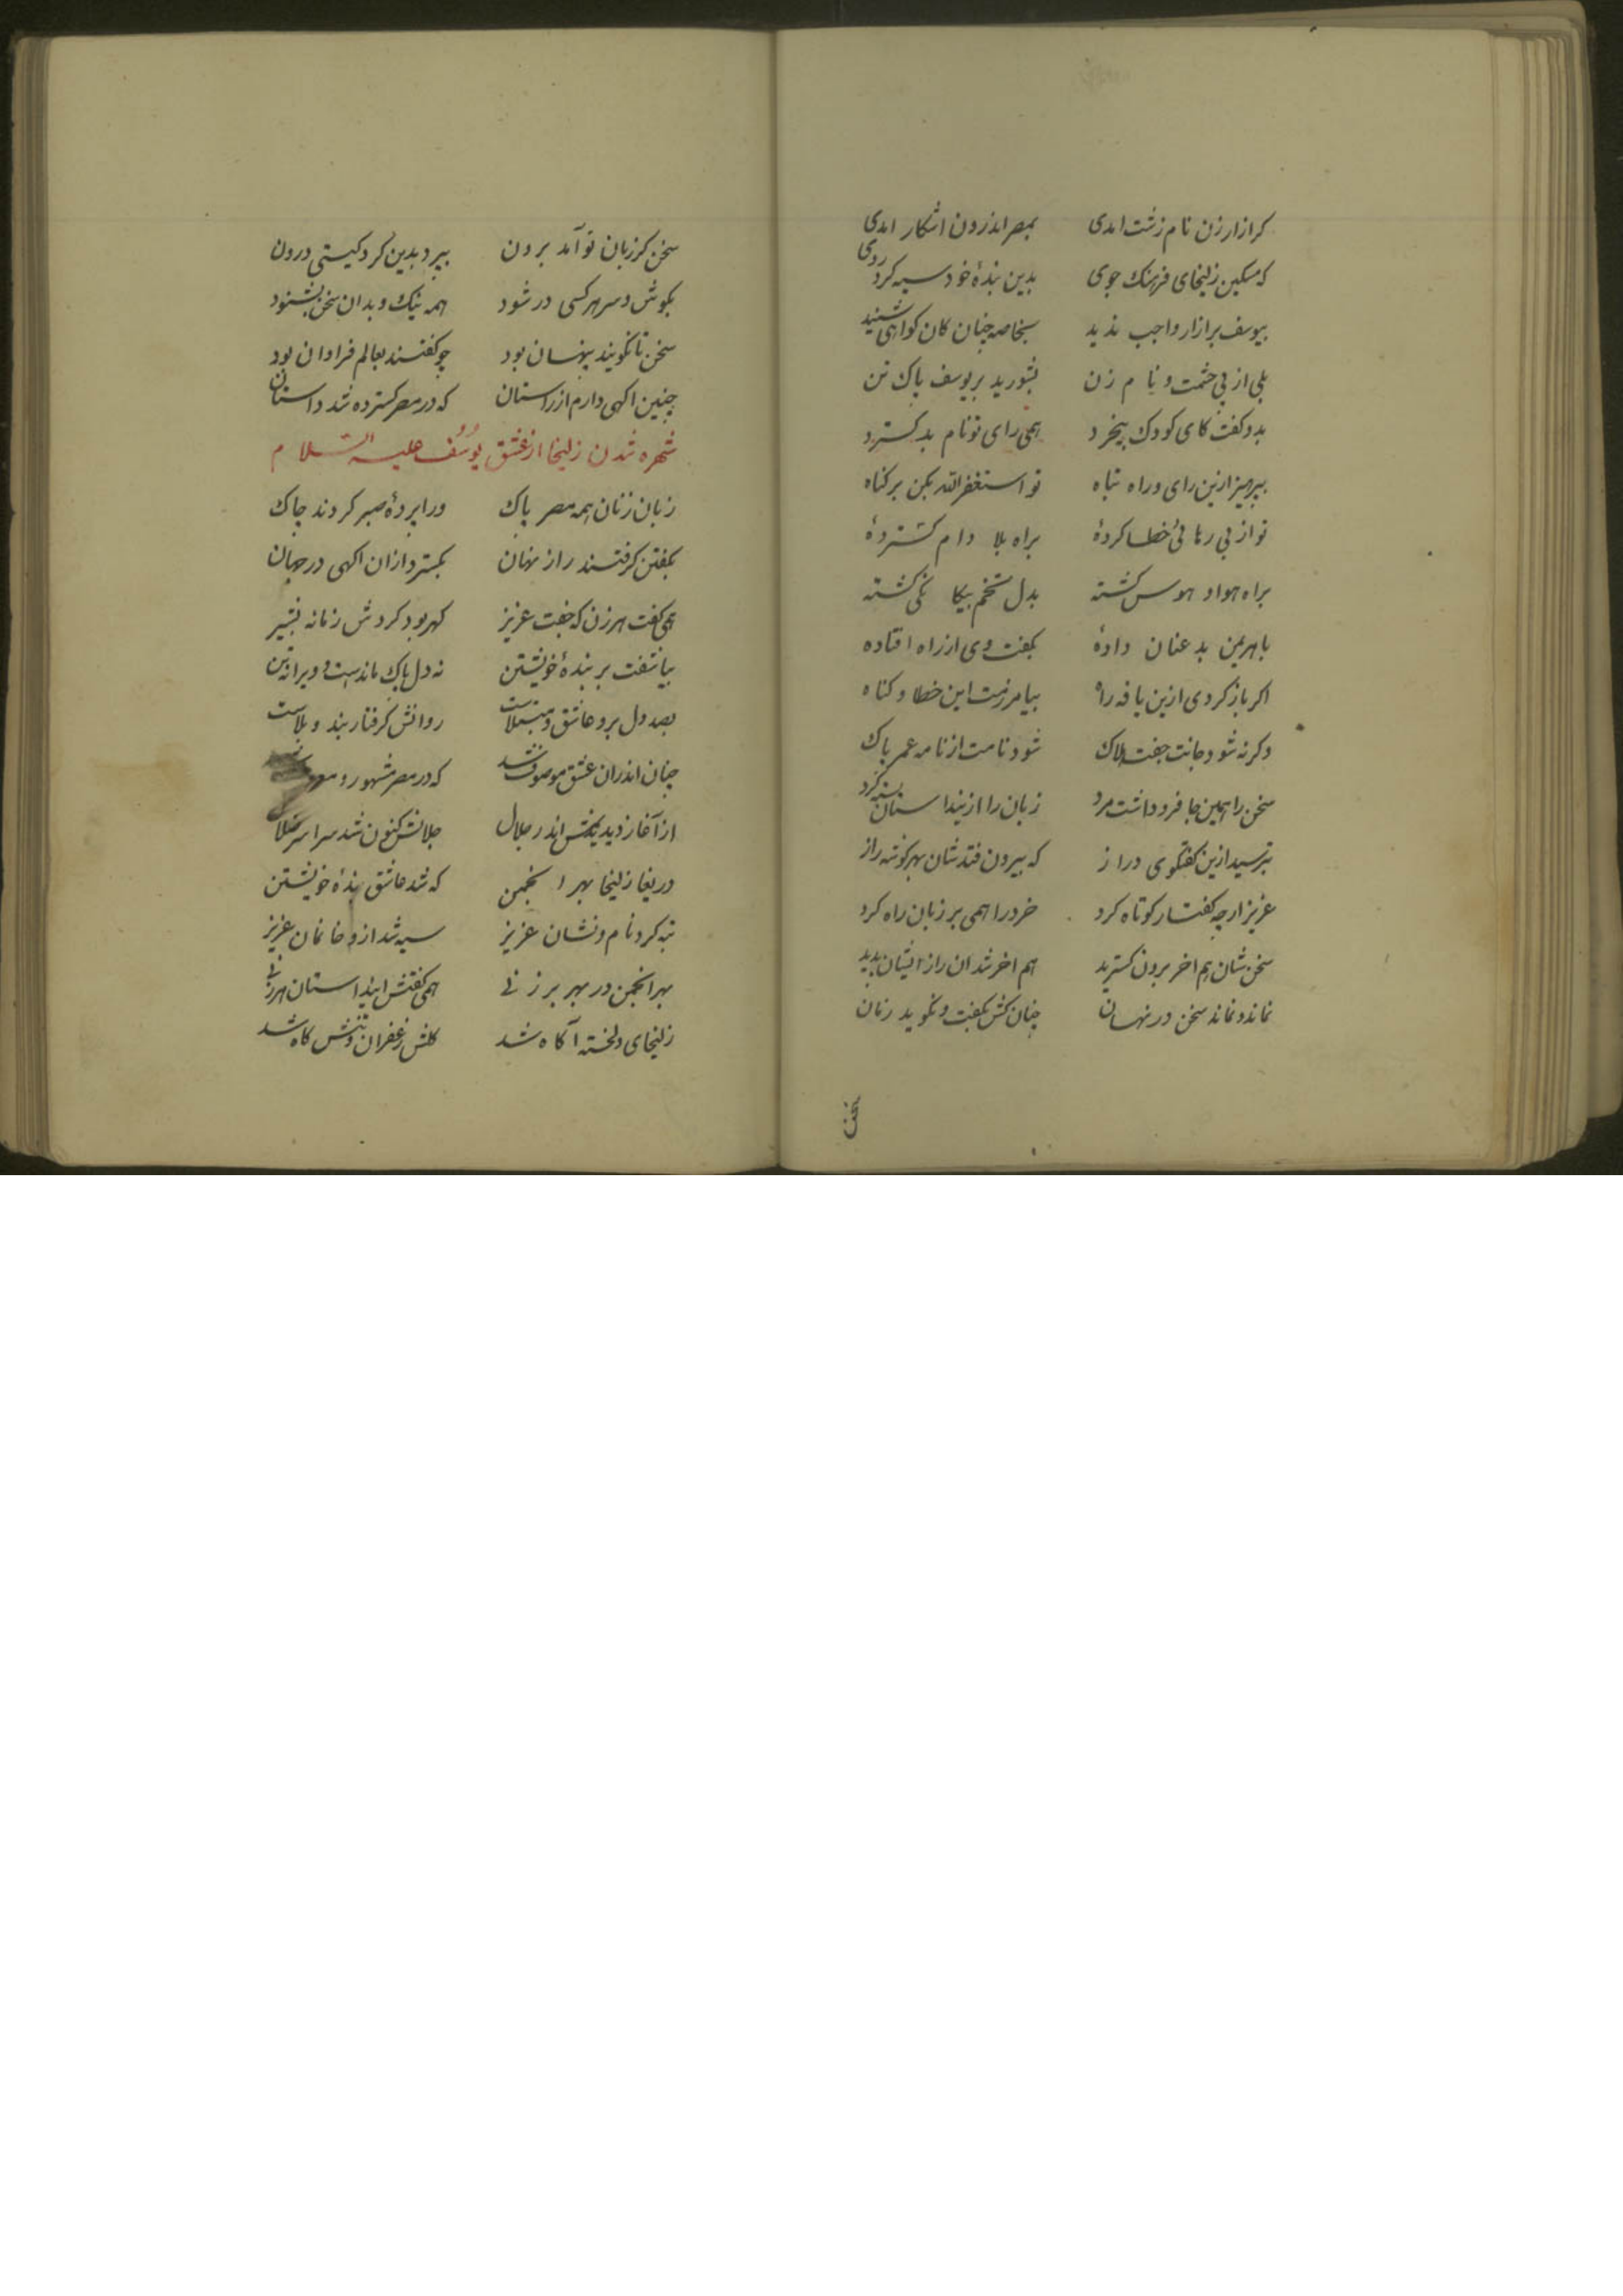 کز ازار زن نام زشت امدی بمصر اندرون اشکار امدی
که مسکین زلیخای فرهنک جوی بدین بندهٔ خود سیه کرد روی
بیوسف بر ازار واجب ندید بخاصه چنان کان کواهی شنید
بلی از پی حشمت و نام زن بشورید بر یوسف پاک تن
بدو کفت کای کودک بیخرد همی رای تو نام بد کسترد
بپرهیز ازین رای و راه تباه تو استغفر الله بکن بر کناه
تو از بی رهائی خطا کردهٔ براه بلا دام کستردهٔ
براه هوا و هوس کشته بدل تخم بیکانکی کشته
باهریمن بد عنان دادهٔ بکفت وی از راه افتاده
اکر باز کردی ازین یافه راه بیامرزمت این خطا و کناه
وکرنه شود جانت جفت هلاک شود نامت از نامه عمر پاک
سخن را همین جا فرو داشت مرد زبان را ازیندا ستان بسته کرد
بترسید ازین کفتکوی دراز که بیرون فتد شان بهر کوشه راز
عزیز ارچه کفتار کوتاه کرد خرد را همی بر زبان راه کرد
سخن شان هم اخر برون کسترید هم اخر شد ان راز ایشان پدید
نماند و نماند سخن در نهان چنان کش بکفت و نکوید زنان
سخن
سخن کز زبان تو آمد برون بپرد بدین کرد کیتی درون
بکوش و سر هر کسی در شود همه نیک و بد ان سخن بشنود
سخن تا نکویند پنهان بود چو کفتند بعالم فراوان بود
چنین اکهی دارم از راستان که در مصر کسترده شد داستان
شهره شدن زلیخا از عشق یوسف علیه السلام
زبان زنان همه مصر پاک ورا پردهٔ صبر کردند چاک
بکفتن کرفتند راز نهان بکسترد ازان اکهی در جهان
همی کفت هر زن که جفت عزیز کهر بود کردش زمانه بشیر
بیاشفت بر بندهٔ خویشتن نه دل پاک ماندست ویرا نه تن
بصد دل برو عاشق و مبتلاست روانش کرفتار بند و بلاست
چنان اندران عشق موصوف شد که در مصر مشهور و
از آغاز دیدیمش اندر جلال جلالش کنون شد سراسر ضلال
دریغا زلیخا بهر انجمن که شد عاشق بندهٔ خویشتن
تبه کرد نام و نشان عزیز سیه شد ازو خانمان عزیز
بهر انجمن در بهر برزنی همی کفتش ایندا ستان هر زنی
زلیخای دلخسته آکاه شد کلش زعفران و تنش کاه شد